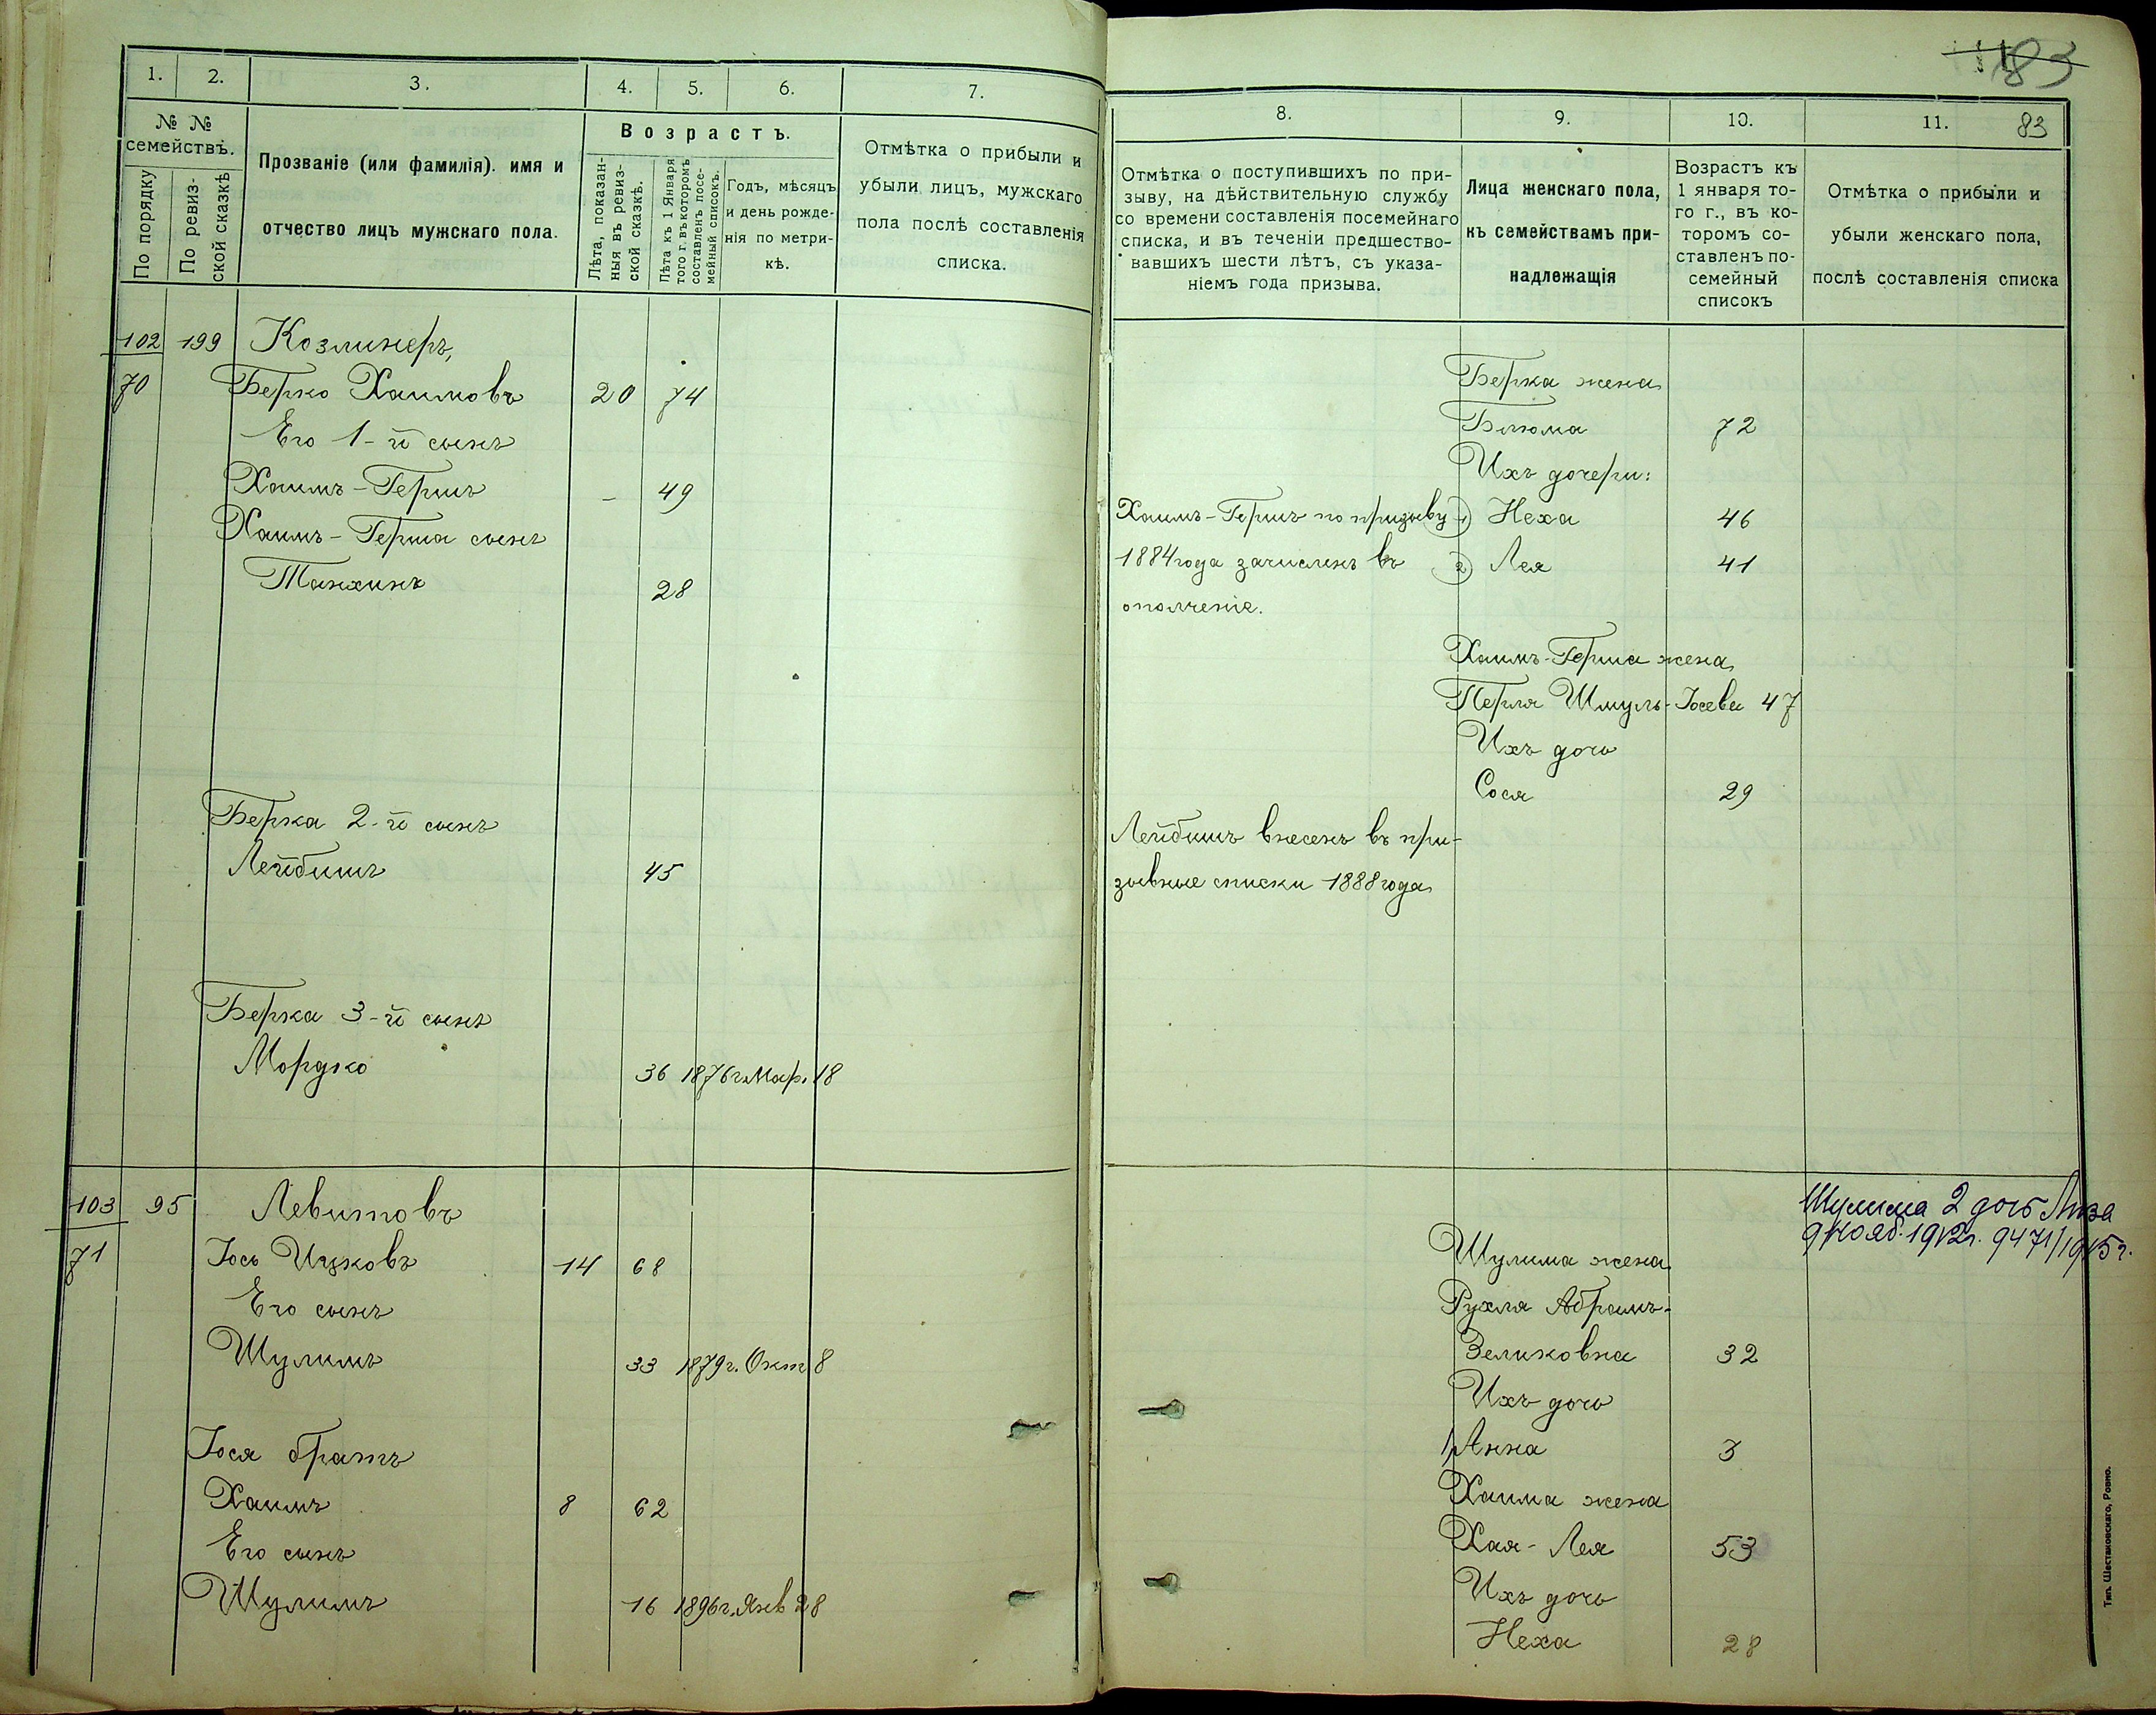 183
83
1. 2. 3. 4. 5. 6. 7.
№ №
семействъ.
По порядку
По ревиз-
ской сказкѣ
Прозваніе (или фамилія). имя и
отчество лицъ мужскаго пола.
Возрастъ.
Лѣта, показан-
ныя въ ревиз-
ской сказкѣ.
Лѣта къ 1 Января
того г. въ которомъ
составленъ посе-
мейный списокъ.
Годъ, мѣсяцъ
и день рожде-
нія по метри-
кѣ.
Отмѣтка о прибыли и
убыли лицъ, мужскаго
пола послѣ составленія
списка.
102 199 Козлинеръ,
70 Берко Хаимовъ 20 74
Его 1-й сынъ
Хаимъ-Гершъ - 49
Хаимъ-Герша сынъ
Танхинъ 28
Берка 2-й сынъ
Лейбишъ 45
Берка 3-й сынъ
Мордко 36 1876г. Мар. 18
103 95 Левитовъ
71 Іось Ицковъ 14 68
Его сынъ
Шулимъ 33 1879г. Окт 8
Іося братъ
Хаимъ 8 62
Его сынъ
Шулимъ 16 1896г. Янв 28
8. 9. 10. 11.
Отмѣтка о поступившихъ по при-
зыву, на дѣйствительную службу
со времени составленія посемейнаго
списка, и въ теченіи предшество-
вавшихъ шести лѣтъ, съ указа-
ніемъ года призыва.
Лица женскаго пола,
къ семействамъ при-
надлежащія
Возрастъ къ
1 января то-
го г., въ ко-
торомъ со-
ставленъ по-
семейный
списокъ
Отмѣтка о прибыли и
убыли женскаго пола,
послѣ составленія списка
Берка жена
Блюма 72
Ихъ дочери:
Хаимъ-Гершъ по призыву 1) Неха 46
1884 года зачисленъ въ 2) Лея 41
ополченіе.
Хаимъ-Герша жена
Перля Шмуль-Іосева 47
Ихъ дочь
Сося 29
Лейбишъ внесенъ въ при-
зывные списки 1888 года
Шулима 2 дочь Лиза
9 нояб. 1912г. 9471/1915г.
Шулима жена
Рухля Абрамъ-
Зелиховна 32
Ихъ дочь
Анна 3
Хаима жена
Хая-Лея 53
Ихъ дочь
Неха 28
Тип. Шестаковскаго, Ровно.